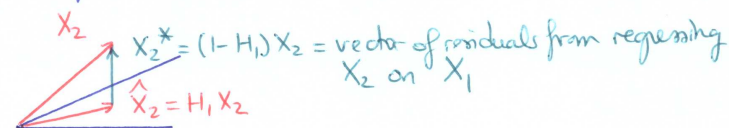 X₂
X₂* = (1-H₁)X₂ = vector of residuals from regressing
X₂ on X₁
X̂₂ = H₁X₂